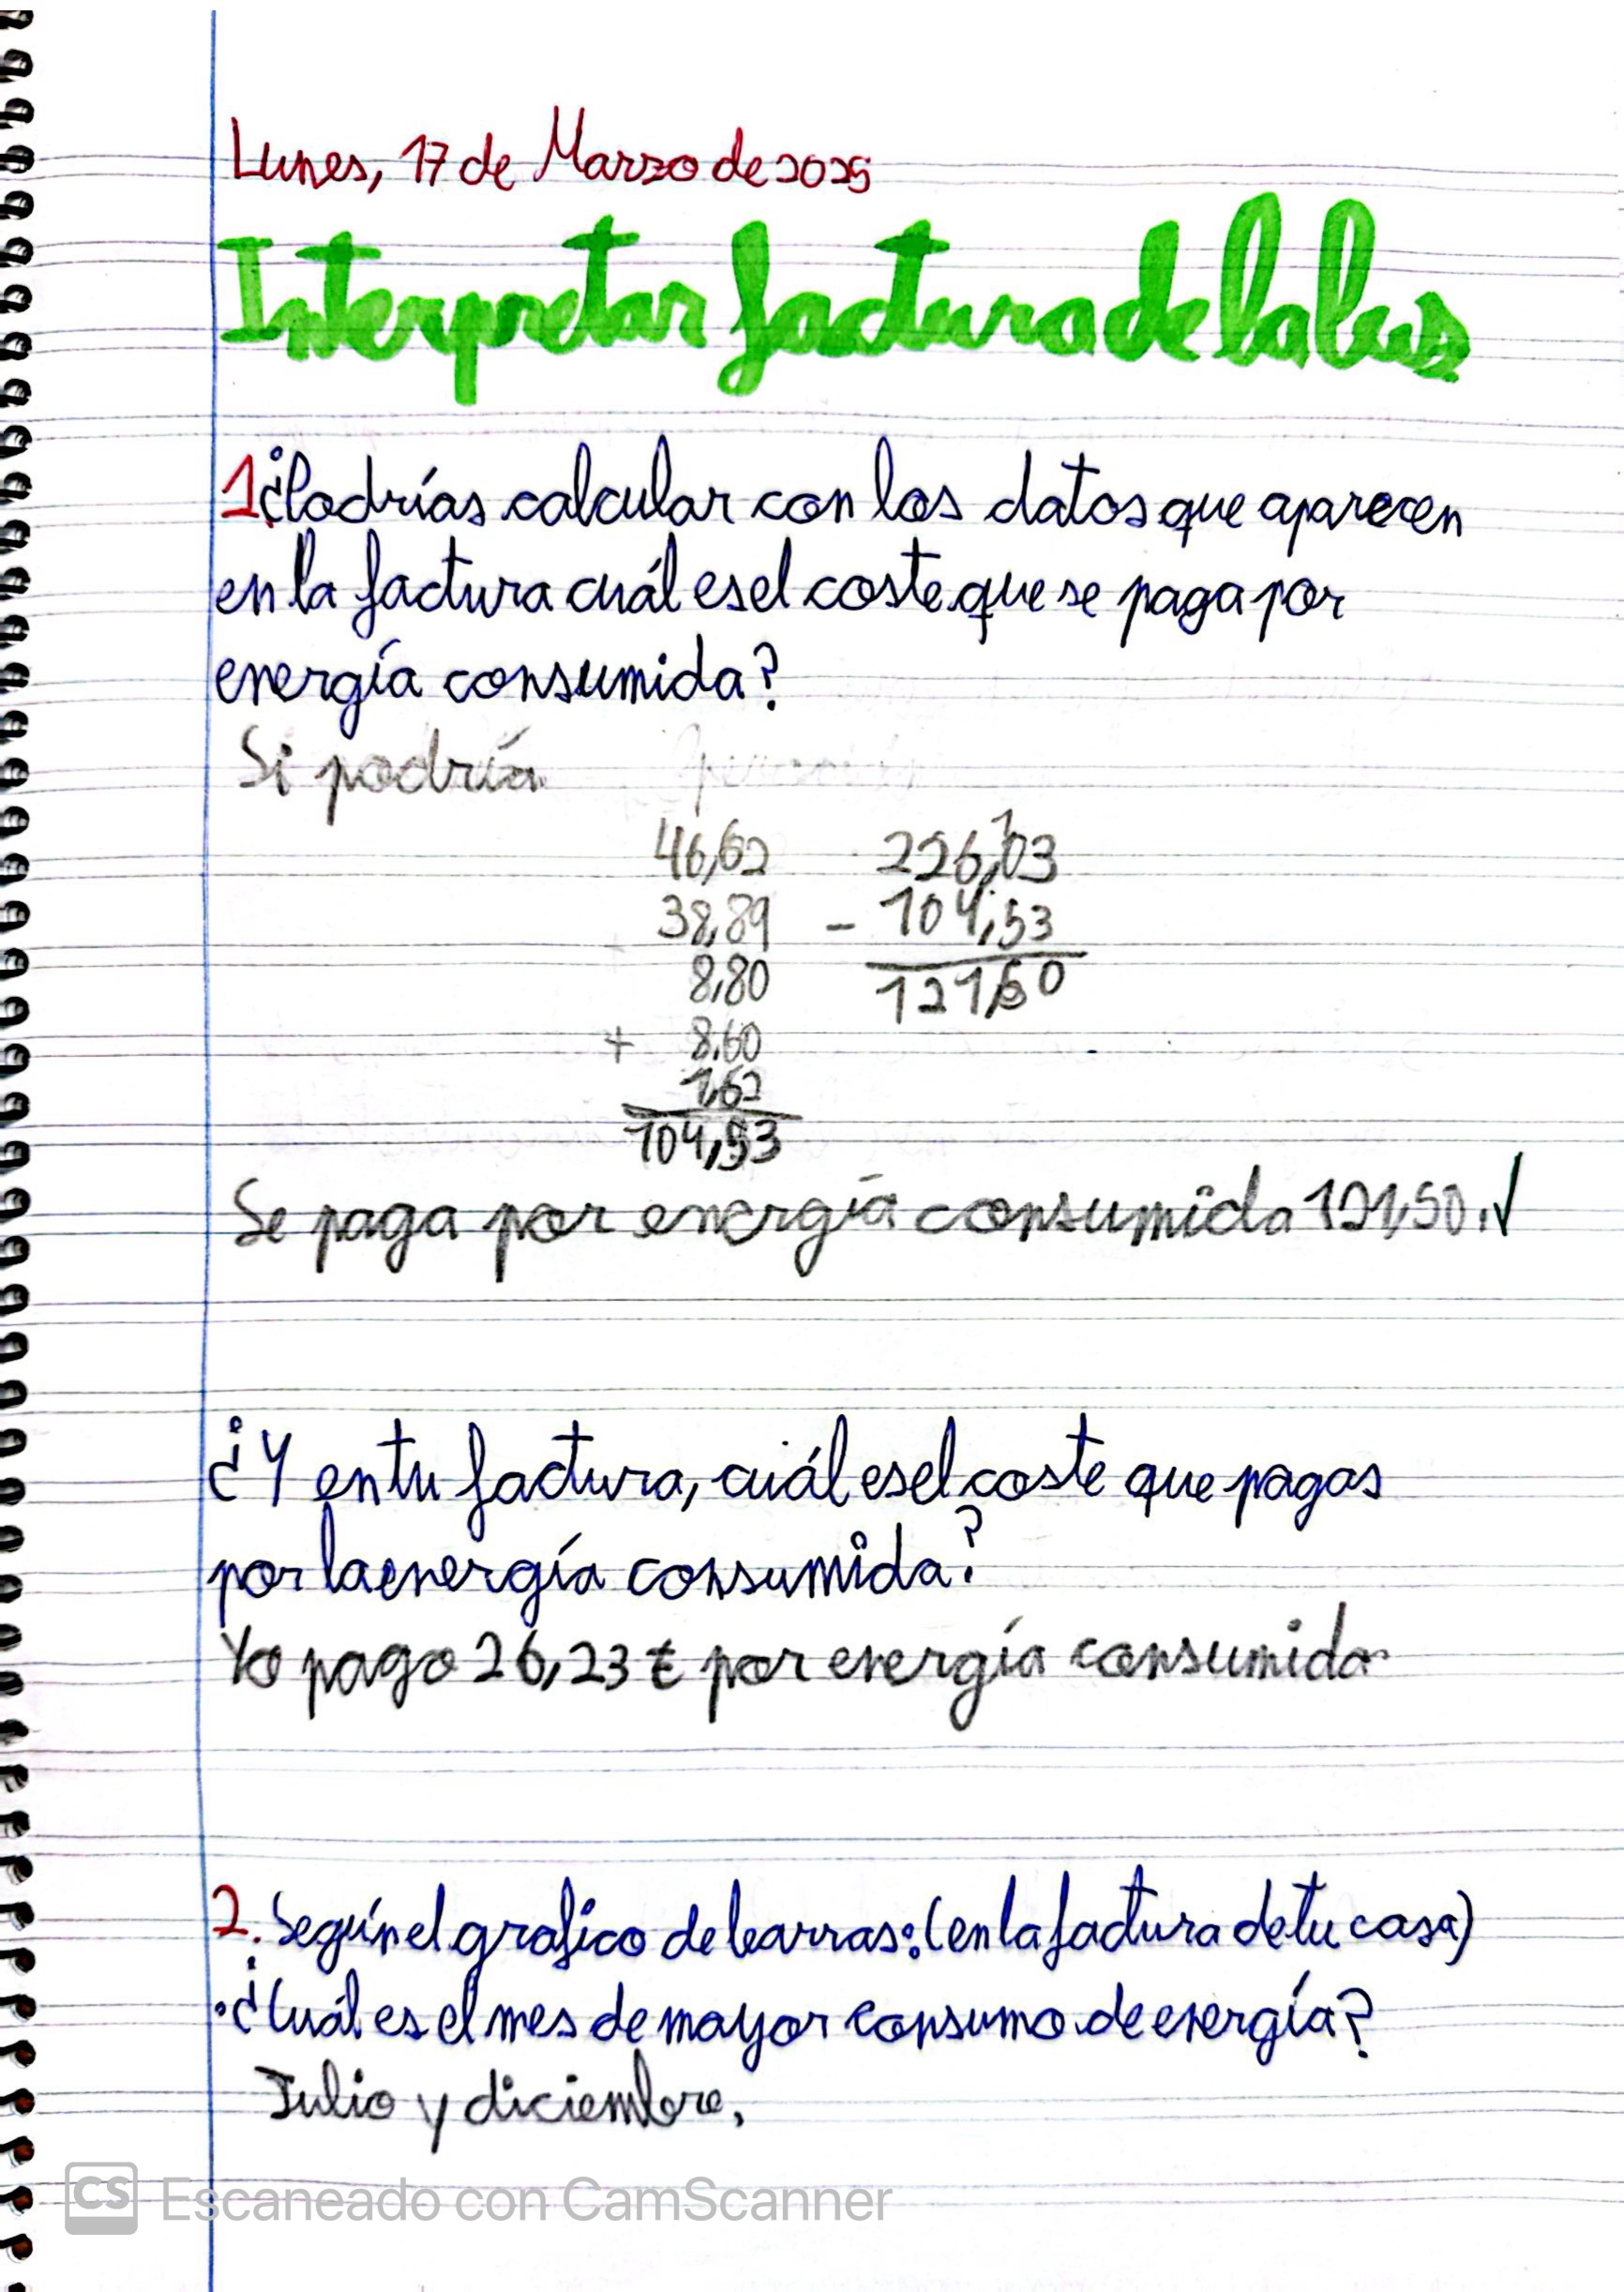 Lunes, 17 de Marzo de 2025
Interpretar factura de la luz
1. ¿Podrías calcular con los datos que aparecen
en la factura cuál es el coste que se paga por
energía consumida?
Si podría
46,62
38,89
8,80
+ 8,60
1,62
104,53
226,03
- 104,53
121,50
Se paga por energía consumida 121,50. ✓
¿Y en tu factura, cuál es el coste que pagas
por la energía consumida?
Yo pago 26,23 € por energía consumida
2. Según el grafico de barras: (en la factura de tu casa)
• ¿Cuál es el mes de mayor consumo de energía?
Julio y diciembre.
CS Escaneado con CamScanner